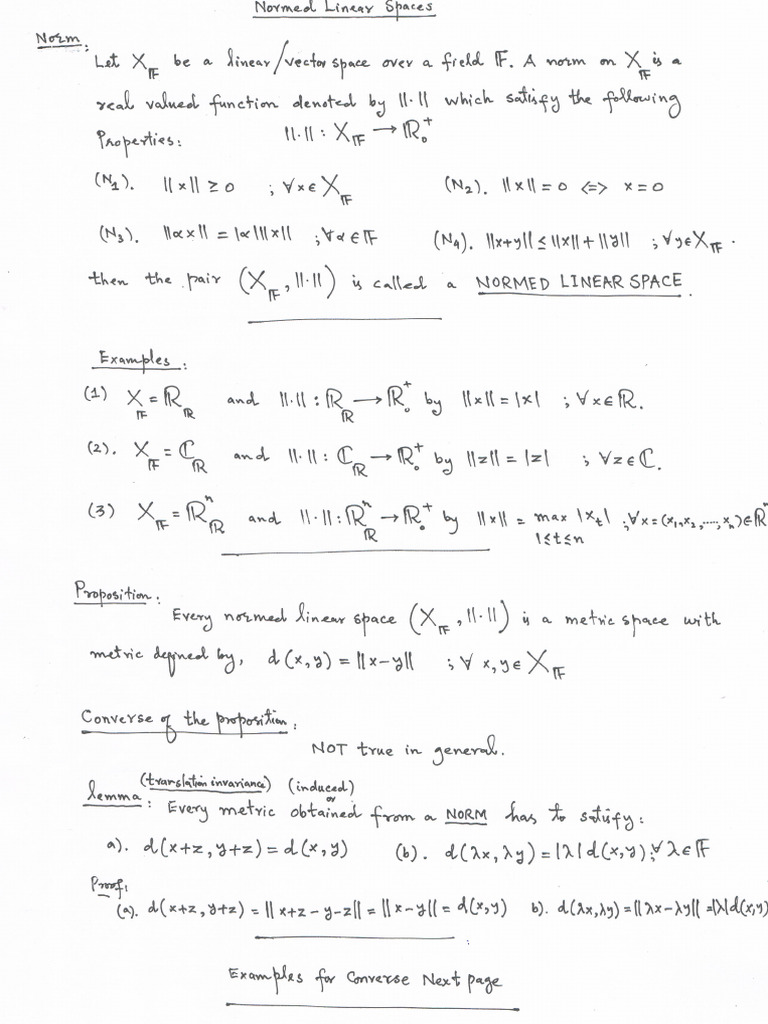 Normed Linear Spaces
Norm:
Let X_𝔽 be a linear/vector space over a field 𝔽. A norm on X_𝔽 is a
real valued function denoted by ||·|| which satisfy the following
Properties: ||·|| : X_𝔽 → ℝ₀⁺
(N₁). ||x|| ≥ 0 ; ∀x∈X_𝔽 (N₂). ||x|| = 0 <=> x = 0
(N₃). ||αx|| = |α| ||x|| ; ∀α∈𝔽 (N₄). ||x+y|| ≤ ||x|| + ||y|| ; ∀y∈X_𝔽.
then the pair (X_𝔽, ||·||) is called a NORMED LINEAR SPACE.
Examples:
(1) X_𝔽 = ℝ_ℝ and ||·|| : ℝ_ℝ → ℝ₀⁺ by ||x|| = |x| ; ∀x∈ℝ.
(2). X_𝔽 = ℂ_ℝ and ||·|| : ℂ_ℝ → ℝ₀⁺ by ||z|| = |z| ; ∀z∈ℂ.
(3) X_𝔽 = ℝⁿ_ℝ and ||·|| : ℝⁿ_ℝ → ℝ₀⁺ by ||x|| = max |x_t| ; ∀x = (x₁, x₂, ...., xₙ)∈ℝⁿ
1≤t≤n
Proposition:
Every normed linear space (X_𝔽, ||·||) is a metric space with
metric defined by, d(x,y) = ||x-y|| ; ∀ x,y∈X_𝔽
Converse of the proposition:
NOT true in general.
(translation invariance) (induced)
or
lemma: Every metric obtained from a NORM has to satisfy:
a). d(x+z, y+z) = d(x,y) (b). d(λx, λy) = |λ| d(x,y) ; ∀ λ∈𝔽
Proof:
(a). d(x+z, y+z) = || x+z - y-z || = || x-y || = d(x,y) b). d(λx,λy) = || λx-λy || = |λ| d(x,y)
Examples for Converse Next page